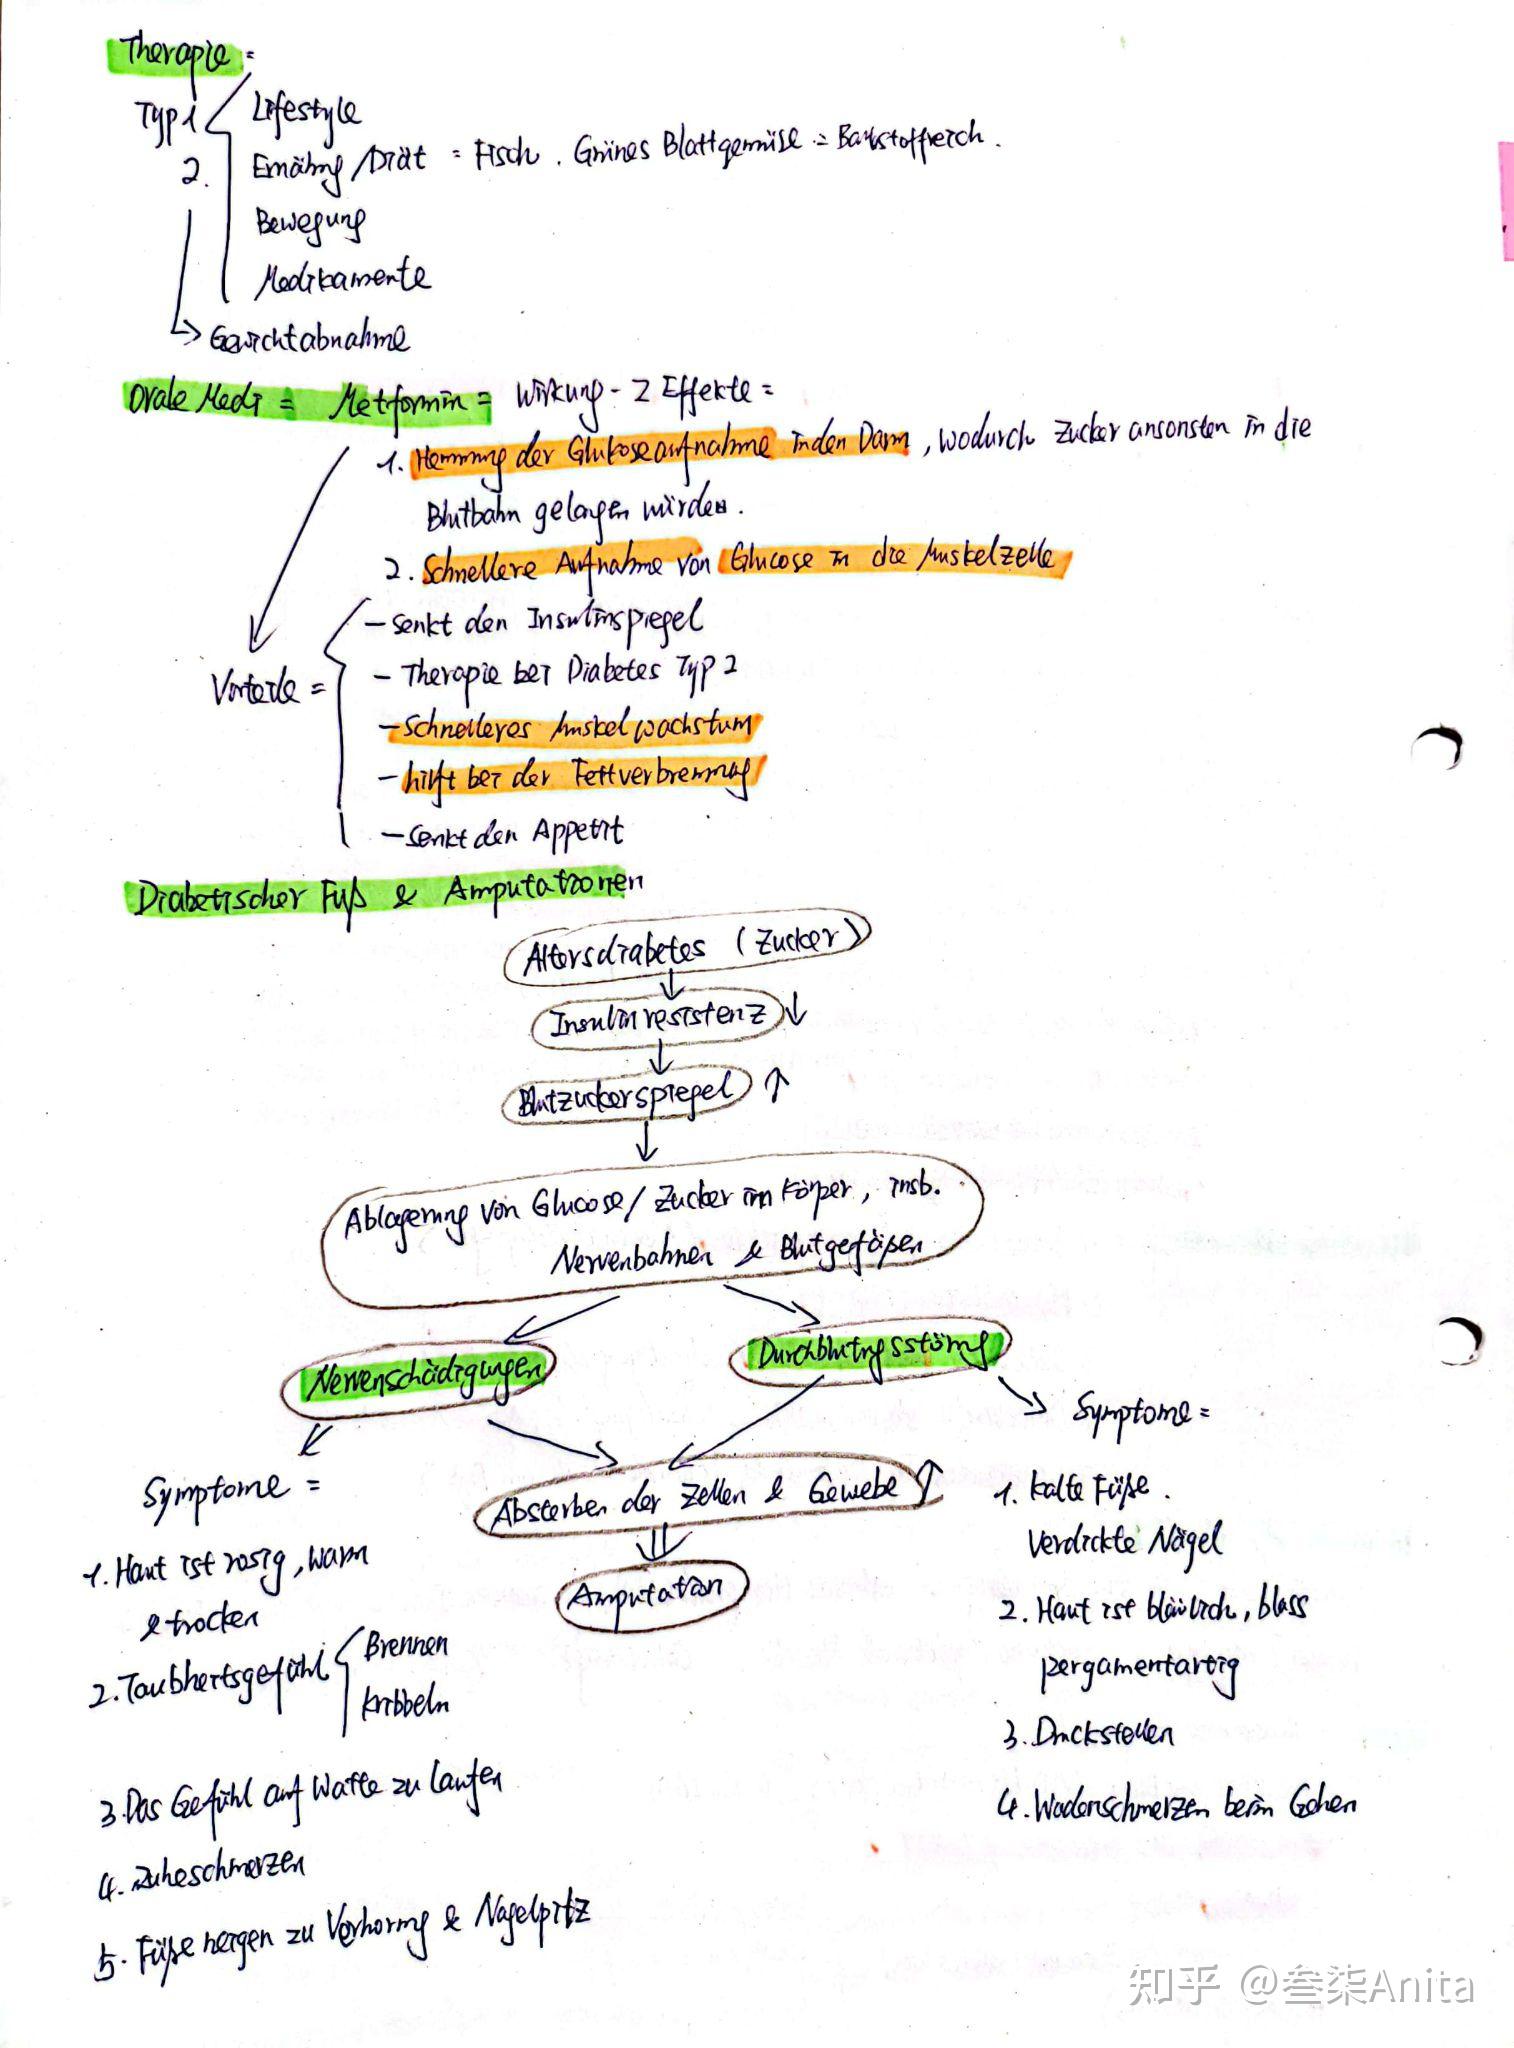 Therapie =
Typ 1
2.
Lifestyle
Ernährg / Diät = Fisch. Grünes Blattgemüse = Ballststoffreich.
Bewegung
Medikamente
→ Gewichtabnahme
Orale Medi = Metformin = Wirkung - 2 Effekte =
1. Hemmung der Glukoseaufnahme in den Darm, wodurch Zucker ansonsten in die
Blutbahn gelangen würden.
2. Schnellere Aufnahme von Glucose in die Muskelzelle
Vorteile =
- senkt den Insulinspiegel
- Therapie bei Diabetes Typ 2
- Schnelleres Muskelwachstum
- hilft bei der Fettverbrennung
- Senkt den Appetit
Diabetischer Fuß & Amputationen
Altersdiabetes (Zucker)
↓
Insulinresistenz ↓
↓
Blutzuckerspiegel ↑
↓
Ablagerung von Glucose / Zucker im Körper, insb.
Nervenbahnen & Blutgefäßen
Nervenschädigungen
Durchblutngsstörng
Symptome =
1. Haut ist rosig, warm
& trocken
2. Taubheitsgefühl
Brennen
Kribbeln
3. Das Gefühl auf Watte zu laufen
4. Ruheschmerzen
5. Füße neigen zu Verhorng & Nagelpilz
Absterben der Zellen & Gewebe ↑
⇓
Amputation
Symptome =
1. Kalte Füße.
Verdickte Nägel
2. Haut ist bläulich, blass
pergamentartig
3. Druckstellen
4. Wadenschmerzen beim Gehen
知乎 @叁柒Anita